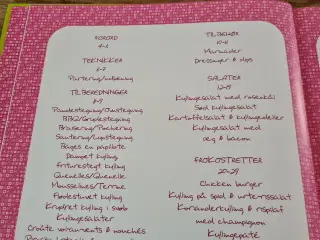 FORORD
4-5
TEKNIKKER
6-7
Partering/udbening
TILBEREDNINGER
8-9
Pandestegning/Stegning
BBQ/Grydestegning
Braisering/Pochering
Sautering/Lynstegning
Bages en papillote
Dampet kylling
Frituresteget kylling
Quenelles/Quenelle
Mousselines/Terrine
Flødestuvet kylling
Krydret kylling i svøb
Kyllingesalater
Croûte
TILBEHØR
10-11
Marinader
Dressinger & dips
SALATER
12-19
Kyllingesalat med rosenkål
Sød kyllingesalat
Kartoffelsalat & kyllingedeller
Kyllingesalat med
æg & bacon
FROKOSTRETTER
20-29
Chicken burger
Kylling på spyd & urterissalat
Korianderkylling & rispilaf
med champignon
Kyllingepaté